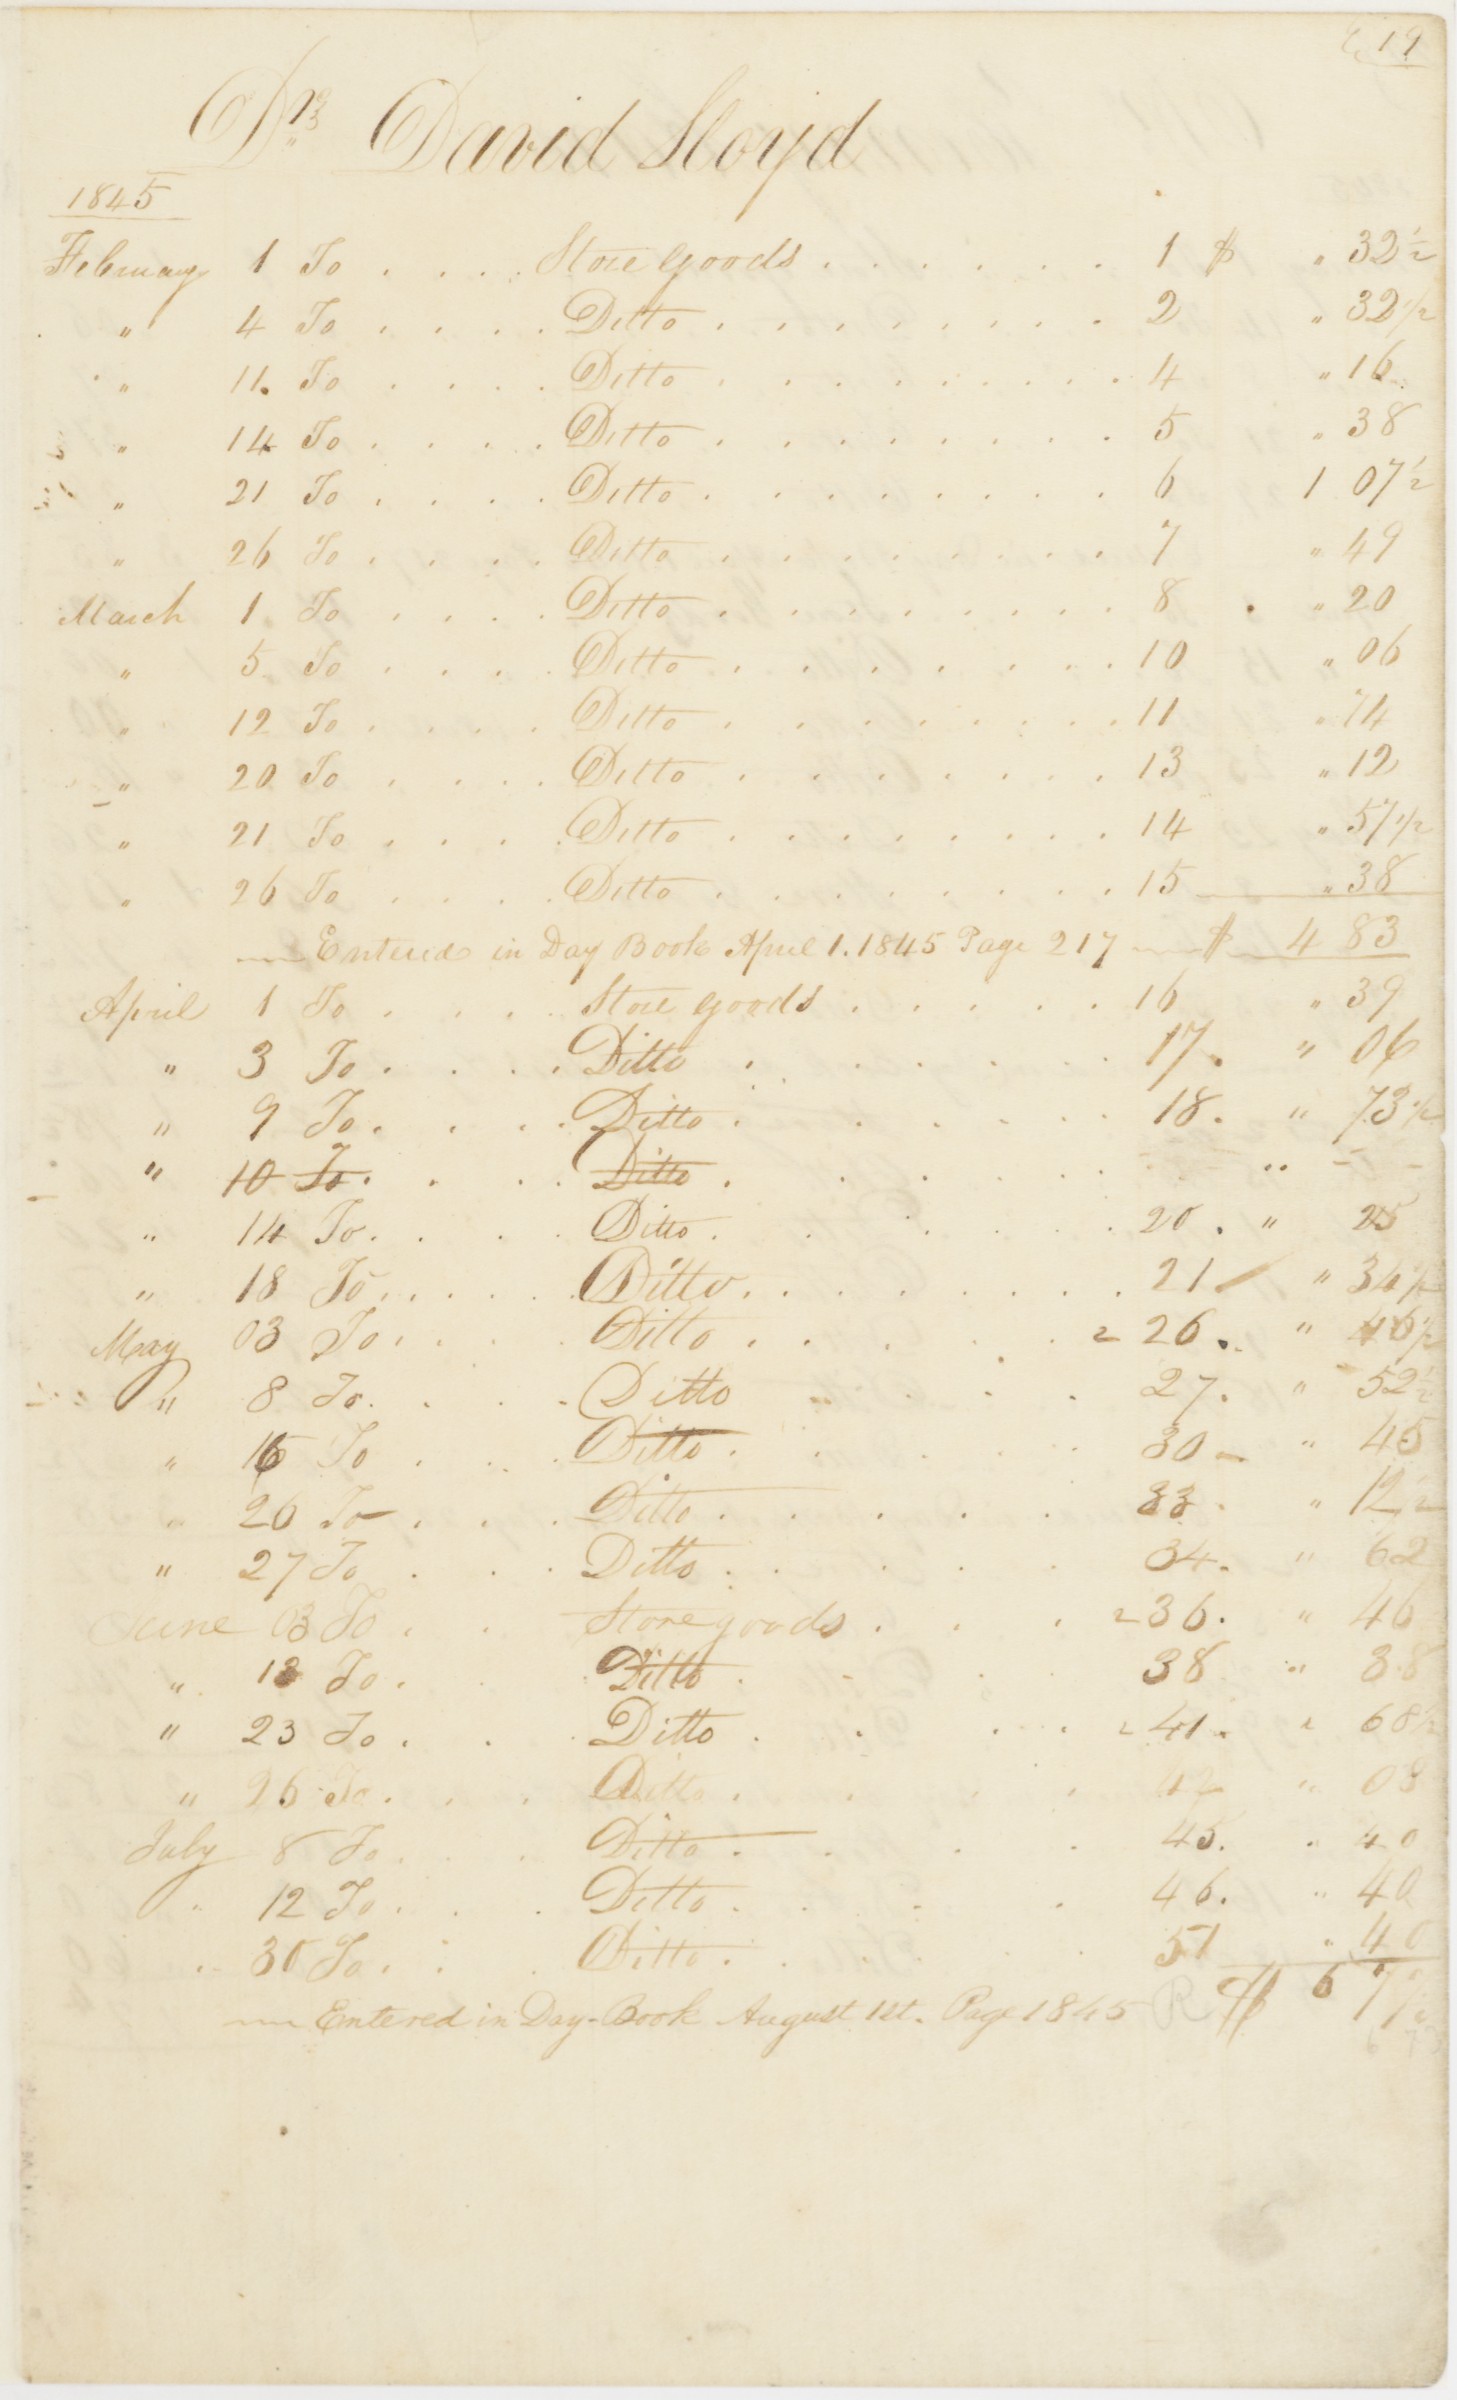 19
Dr. David Lloyd
1845
February 1 To . . . . Store goods . . . . . . 1 $ " 32½
" 4 To . . . . Ditto . . . . . . . . 2 " 32½
" 11. To . . . . Ditto . . . . . . . . . 4 " 16
" 14 To . . . . Ditto . . . . . . . . 5 " 38
" 21 To . . . . Ditto . . . . . . . . 6 1 07½
" 26 To . . . . Ditto . . . . . . . . 7 " 49
March 1 To . . . . Ditto . . . . . . . . 8 " 20
" 5 To . . . . Ditto . . . . . . . 10 " 06
" 12 To . . . . Ditto . . . . . . . . 11 " 74
" 20 To . . . . Ditto . . . . . . . 13 " 12
" 21 To . . . . Ditto . . . . . . . . 14 " 57½
" 26 To . . . . Ditto . . . . . . . . 15 " 38
Entered in Day Book April 1. 1845 Page 217 $ 4 83
April 1 To . . . . Store goods . . . . . 16 " 39
" 3 To . . . . Ditto . . . . . 17. " 06
" 9 To . . . . Ditto . . . . . 18. " 73½
" 10 To . . . . Ditto . . . . . "
" 14 To . . . . Ditto . . . . . 20. " 25
" 18 To . . . . . Ditto . . . . . . . . 21 " 34½
May 03 To . . . . Ditto . . . . . 26. " 46½
" 8 To . . . . Ditto . . . . 27. " 52½
" 16 To . . . Ditto . . . . 30 " 45
" 26 To . . . Ditto . . . . . 33. " 12½
" 27 To . . . Ditto . . . . . 34. " 62
June 03 To . . Store goods . . . 36. " 46
" 13 To . . Ditto . . . 38 " 38
" 23 To . . . Ditto . . . . . 41. " 68½
" 26 To . . . Ditto . . . . 42 " 08
July 8 To . . . Ditto . . . . 45. " 40
" 12 To . . . Ditto . . . . 46. " 40
" 30 To . . . Ditto . . . . 51 " 40
Entered in Day-Book August 1st. Page 1845 $ 6 77